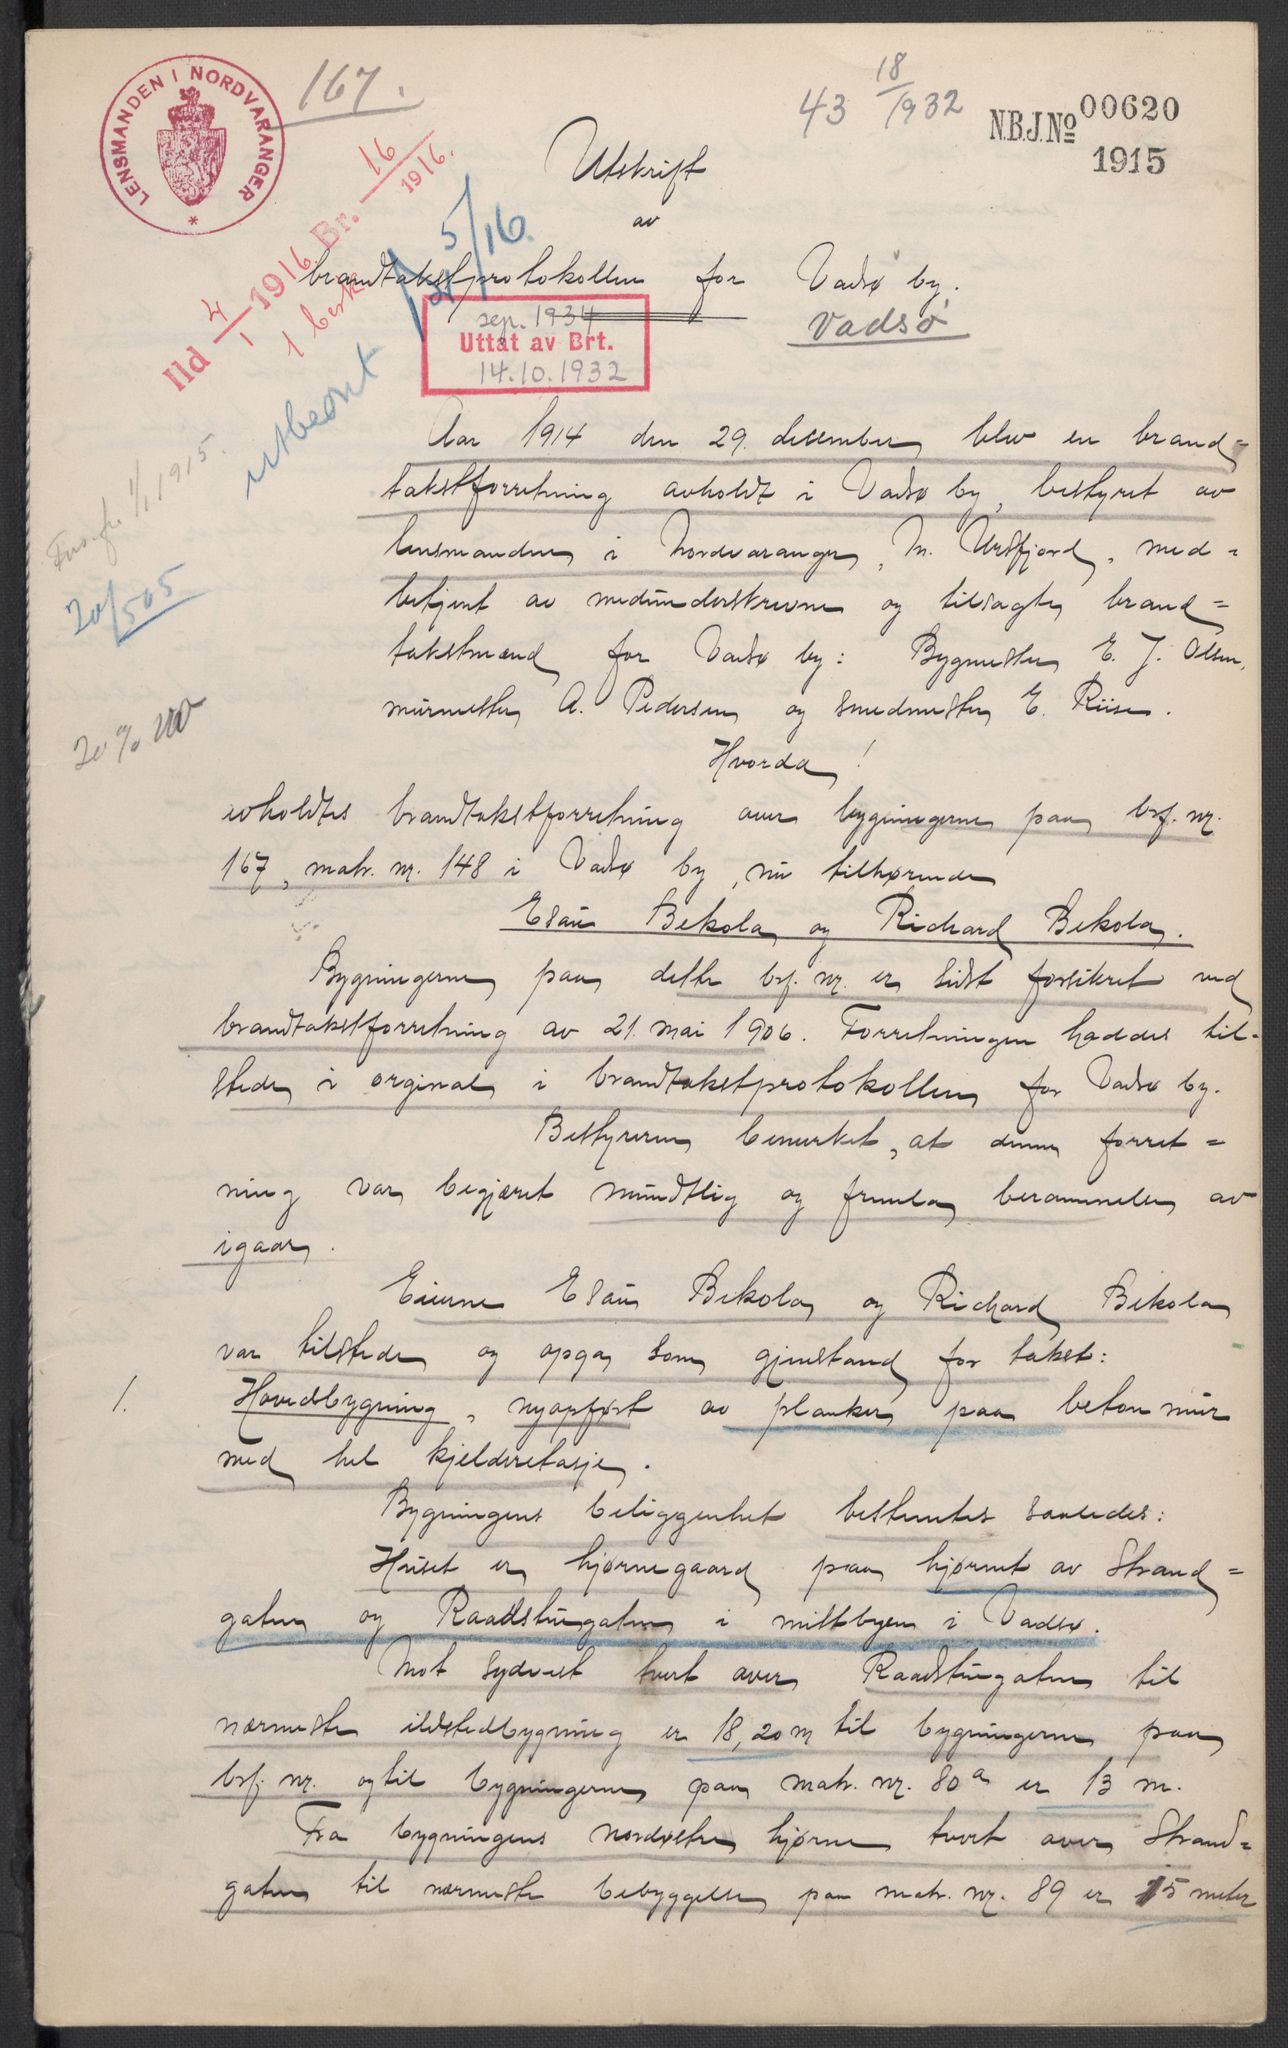 LENSMANDEN I NORDVARANGER
167.
43 18/1932
N.B.J.No 00620
1915
Ild 4/1 1916 Br. 16/1916.
1 besk
utbeont 5/16.
Utskrift
av
brandtakstprotokollen for Vadsø by.
Vadsø
sep. 1934
Uttat av Brt.
14.10.1932
1/1 1915.
20/505
20%
Aar 1914 den 29. december blev en brand=
takstforretning avholdt i Vadsø by, bestyret av
lensmanden i Nordvaranger, M. Ursfjord, med=
betjent av medunderskrevne og tilsagte brand=
takstmænd for Vadsø by: Bygmester E. J. Olsen,
murmester A. Pedersen og smedmester E. Riise.
Hvorda!
avholdtes brandtakstforretning over bygningerne paa brf. nr.
167, matr. nr. 148 i Vadsø by, nu tilhørende
Esau Bekola og Richard Bekola.
Bygningerne paa dette brf. nr. er sidst forsikret ved
brandtakstforretning av 21. mai 1906. Forretningen haddes til-
stede i orginal i brandtakstprotokollen for Vadsø by.
Bestyreren bemerket, at denne forret=
ning var begjæret mundtlig og fremla berammelse av
igaar.
Eierne Esau Bekola og Richard Bekola
var tilstede og opga som gjenstand for takst:
1. Hovedbygning, nyopført av planker paa betonmur
med hel kjelderetasje.
Bygningens beliggenhet bestemtes saaledes:
Huset er hjørnegaard paa hjørnet av Strand=
gaten og Raadstugaten i midtbyen i Vadsø.
Mot sydvest tvert over Raadstugaten til
nærmeste ildstedbygning er 18,20 m til bygningerne paa
brf. nr. og til bygningerne paa matr. nr. 80a er 13 m.
Fra bygningens nordvestre hjørne tvert over Strand=
gaten til nærmeste bebyggelse paa matr. nr. 89 er 15 meter